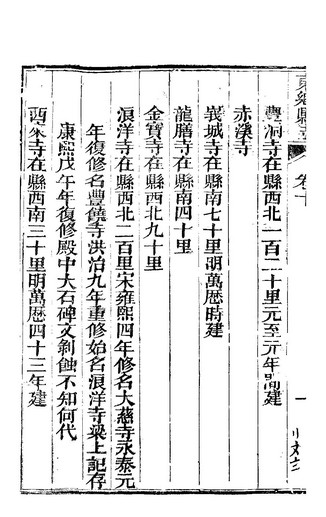 東鄉縣志
卷十
一
豐洞寺在縣西北一百二十里元至元年間建
赤溪寺
峩城寺在縣南七十里明萬厯時建
龍膳寺在縣南四十里
金寶寺在縣西北九十里
浪洋寺在縣西北二百里宋雍熙四年修名大慈寺永泰元
年復修名豐饒寺洪治九年重修始名浪洋寺梁上記存
康熙戊午年復修殿中大石碑文剝蝕不知何代
西來寺在縣西南三十里明萬厯四十三年建